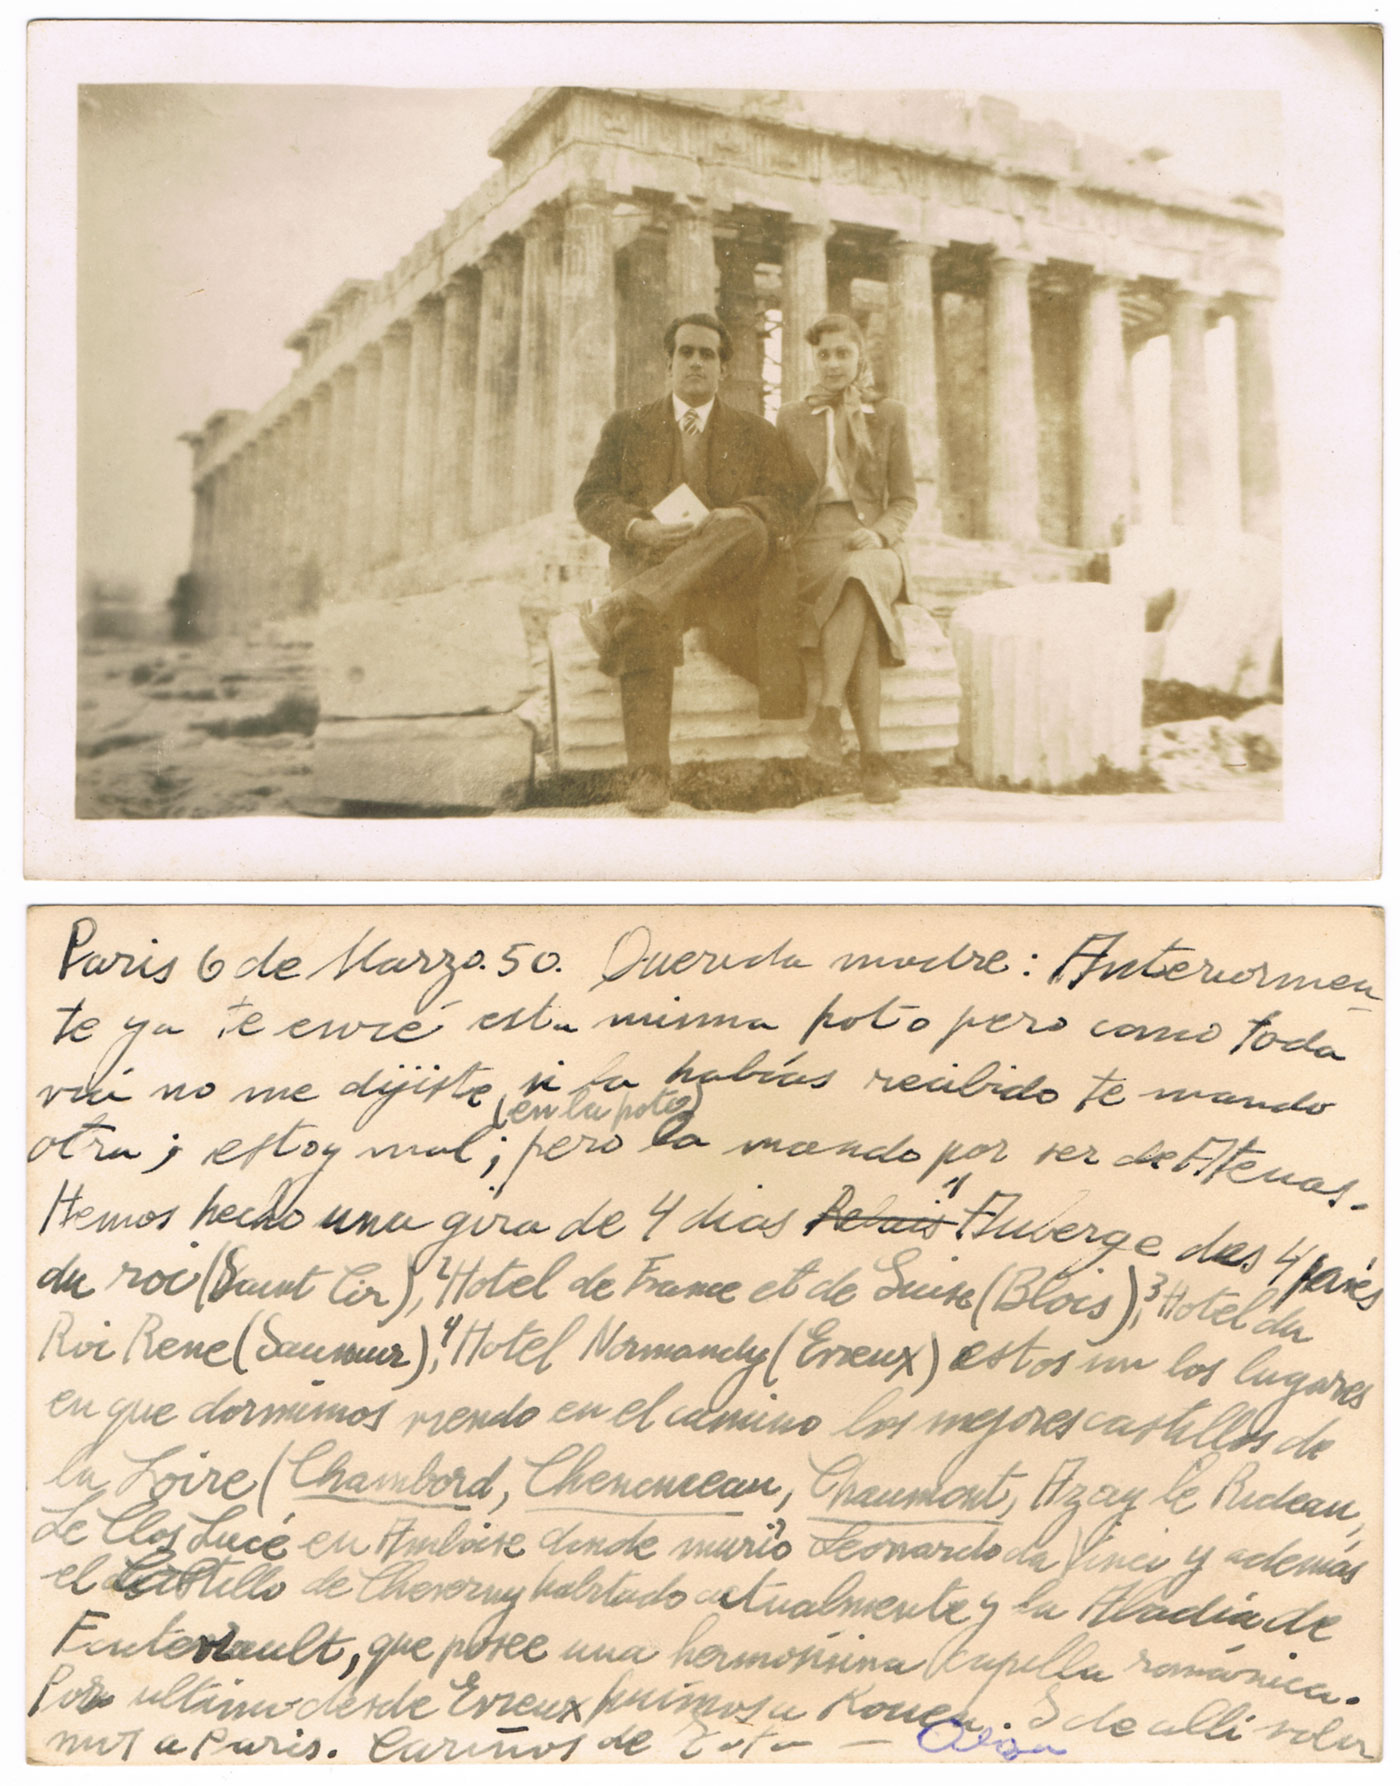 Paris 6 de Marzo. 50. Querida madre: Anteriormen
te ya te envié esta misma foto pero como toda
vía no me dijiste si la habías recibido te mando
(en la foto)
otra; estoy mal; pero la mando por ser de Atenas.
Hemos hecho una gira de 4 dias Relais 1 Auberge des 4 pavés
du roi (Saint Cir), 2 Hotel de France et de Guise (Blois), 3 Hotel du
Roi Rene (Saumur), 4 Hotel Normandy (Evreux) estos son los lugares
en que dormimos viendo en el camino los mejores castillos de
la Loire (Chambord, Chenonceau, Chaumont, Azay le Rideau,
Le Clos Lucé en Amboise donde murió Leonardo da Vinci y además
el Castillo de Cheverny habitado actualmente y la Abadía de
Fontevrault, que posee una hermosísima capilla románica.
Por ultimo desde Evreux fuimos a Rouen. Y de alli volvi
mos a Paris. Cariños de